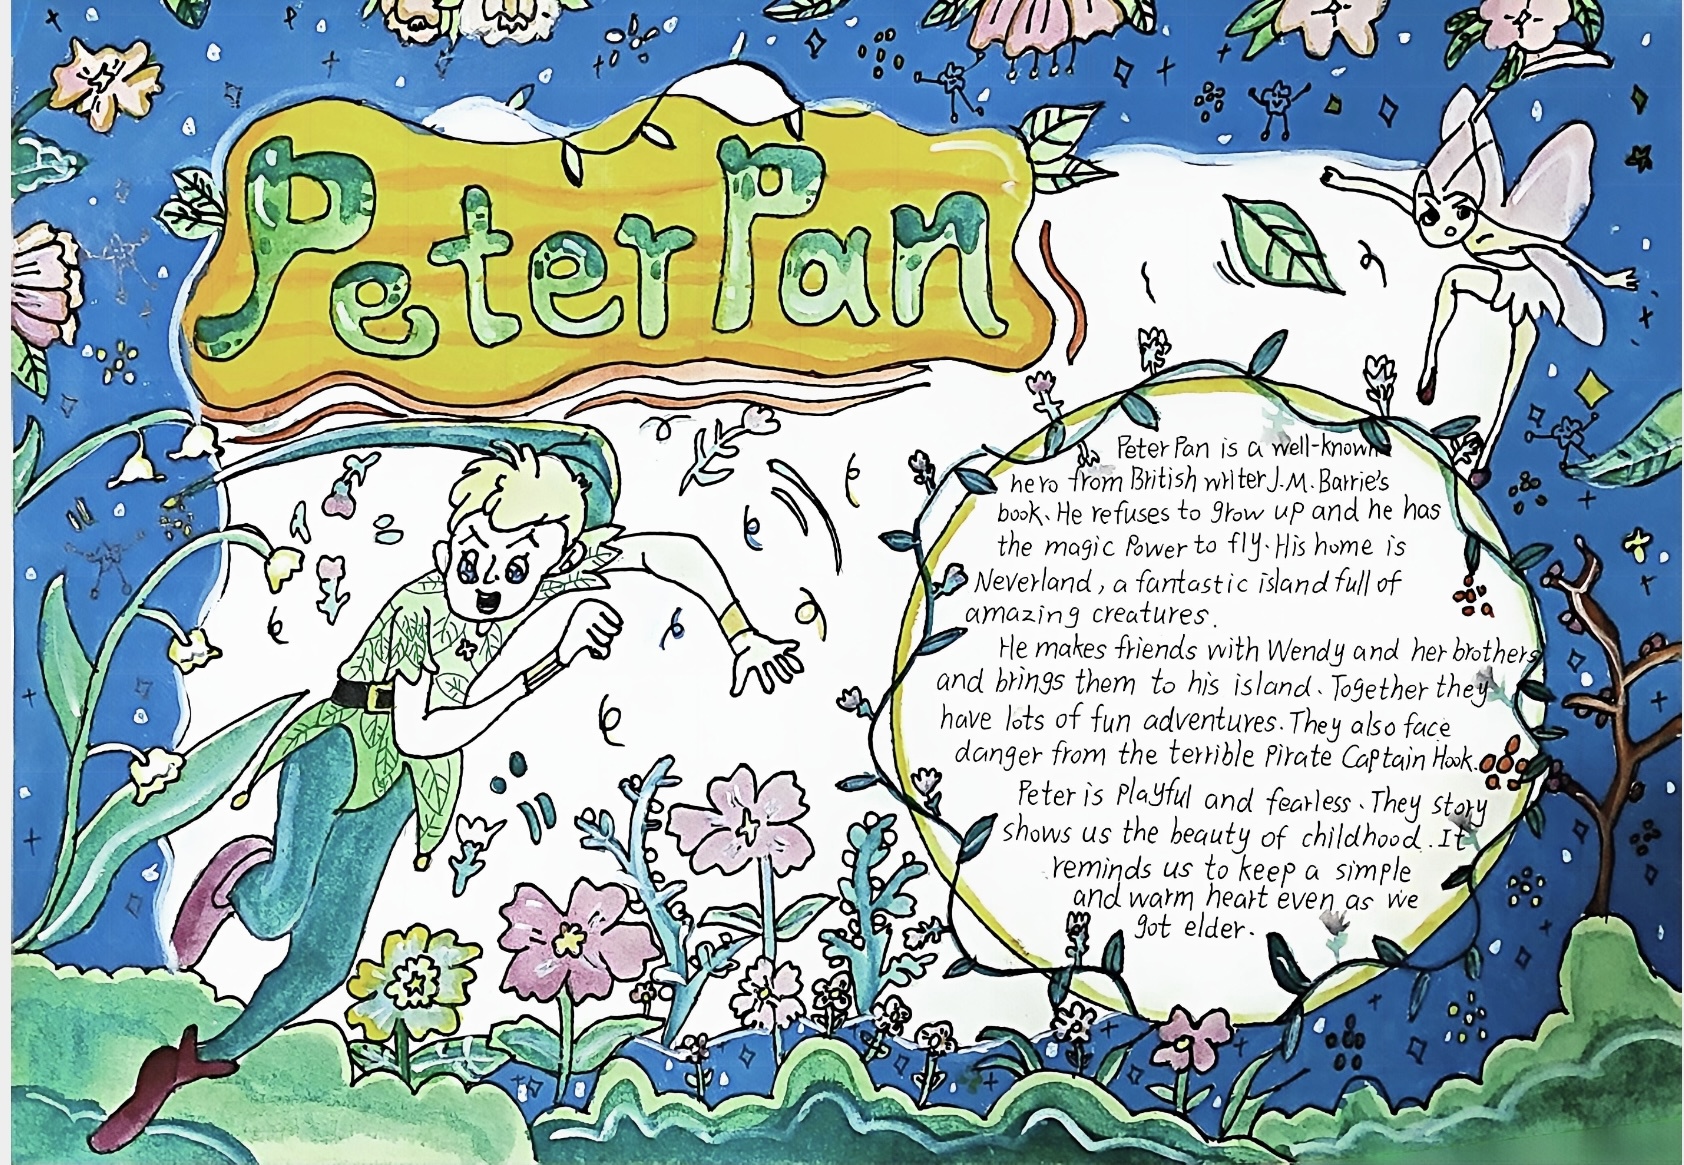 Peter Pan
Peter Pan is a well-known
hero from British writer J.M. Barrie's
book. He refuses to grow up and he has
the magic Power to fly. His home is
Neverland, a fantastic island full of
amazing creatures.
He makes friends with Wendy and her brothers
and brings them to his island. Together they
have lots of fun adventures. They also face
danger from the terrible Pirate Captain Hook.
Peter is Playful and fearless. They story
shows us the beauty of childhood. It
reminds us to keep a simple
and warm heart even as we
got elder.